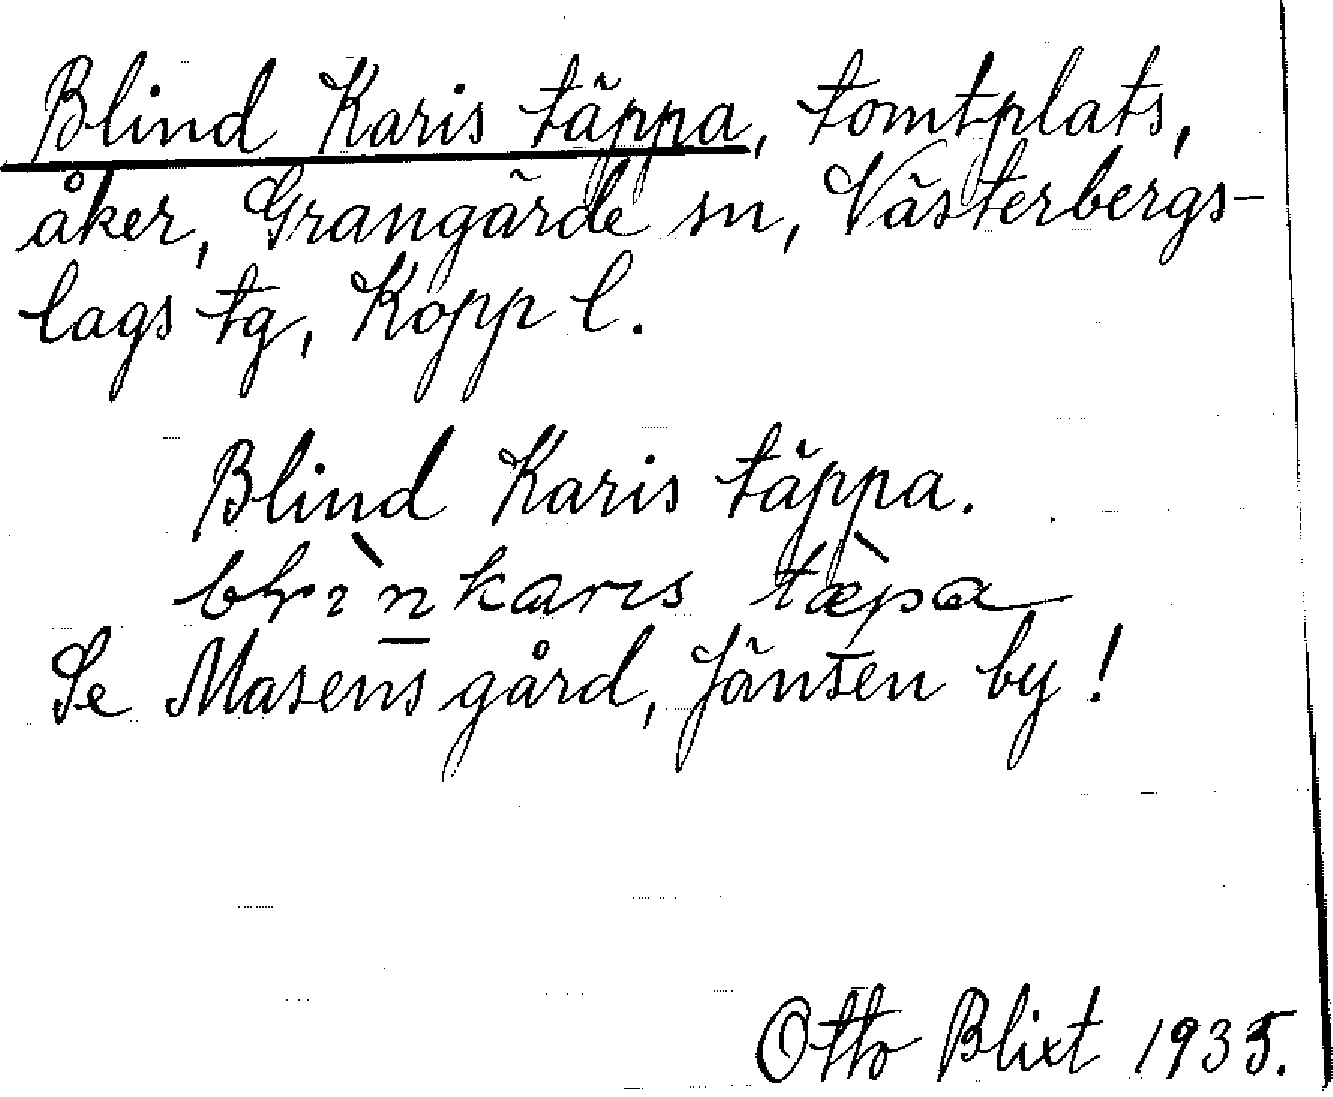 Blind Karis täppa, tomtplats,
åker, Grangärde sn, Västerbergs-
lags tg, Kopp l.
Blind Karis täppa.
karıs tæ̀pa
Se Masensgård, Jänsen by!
Otto Blixt 1935.